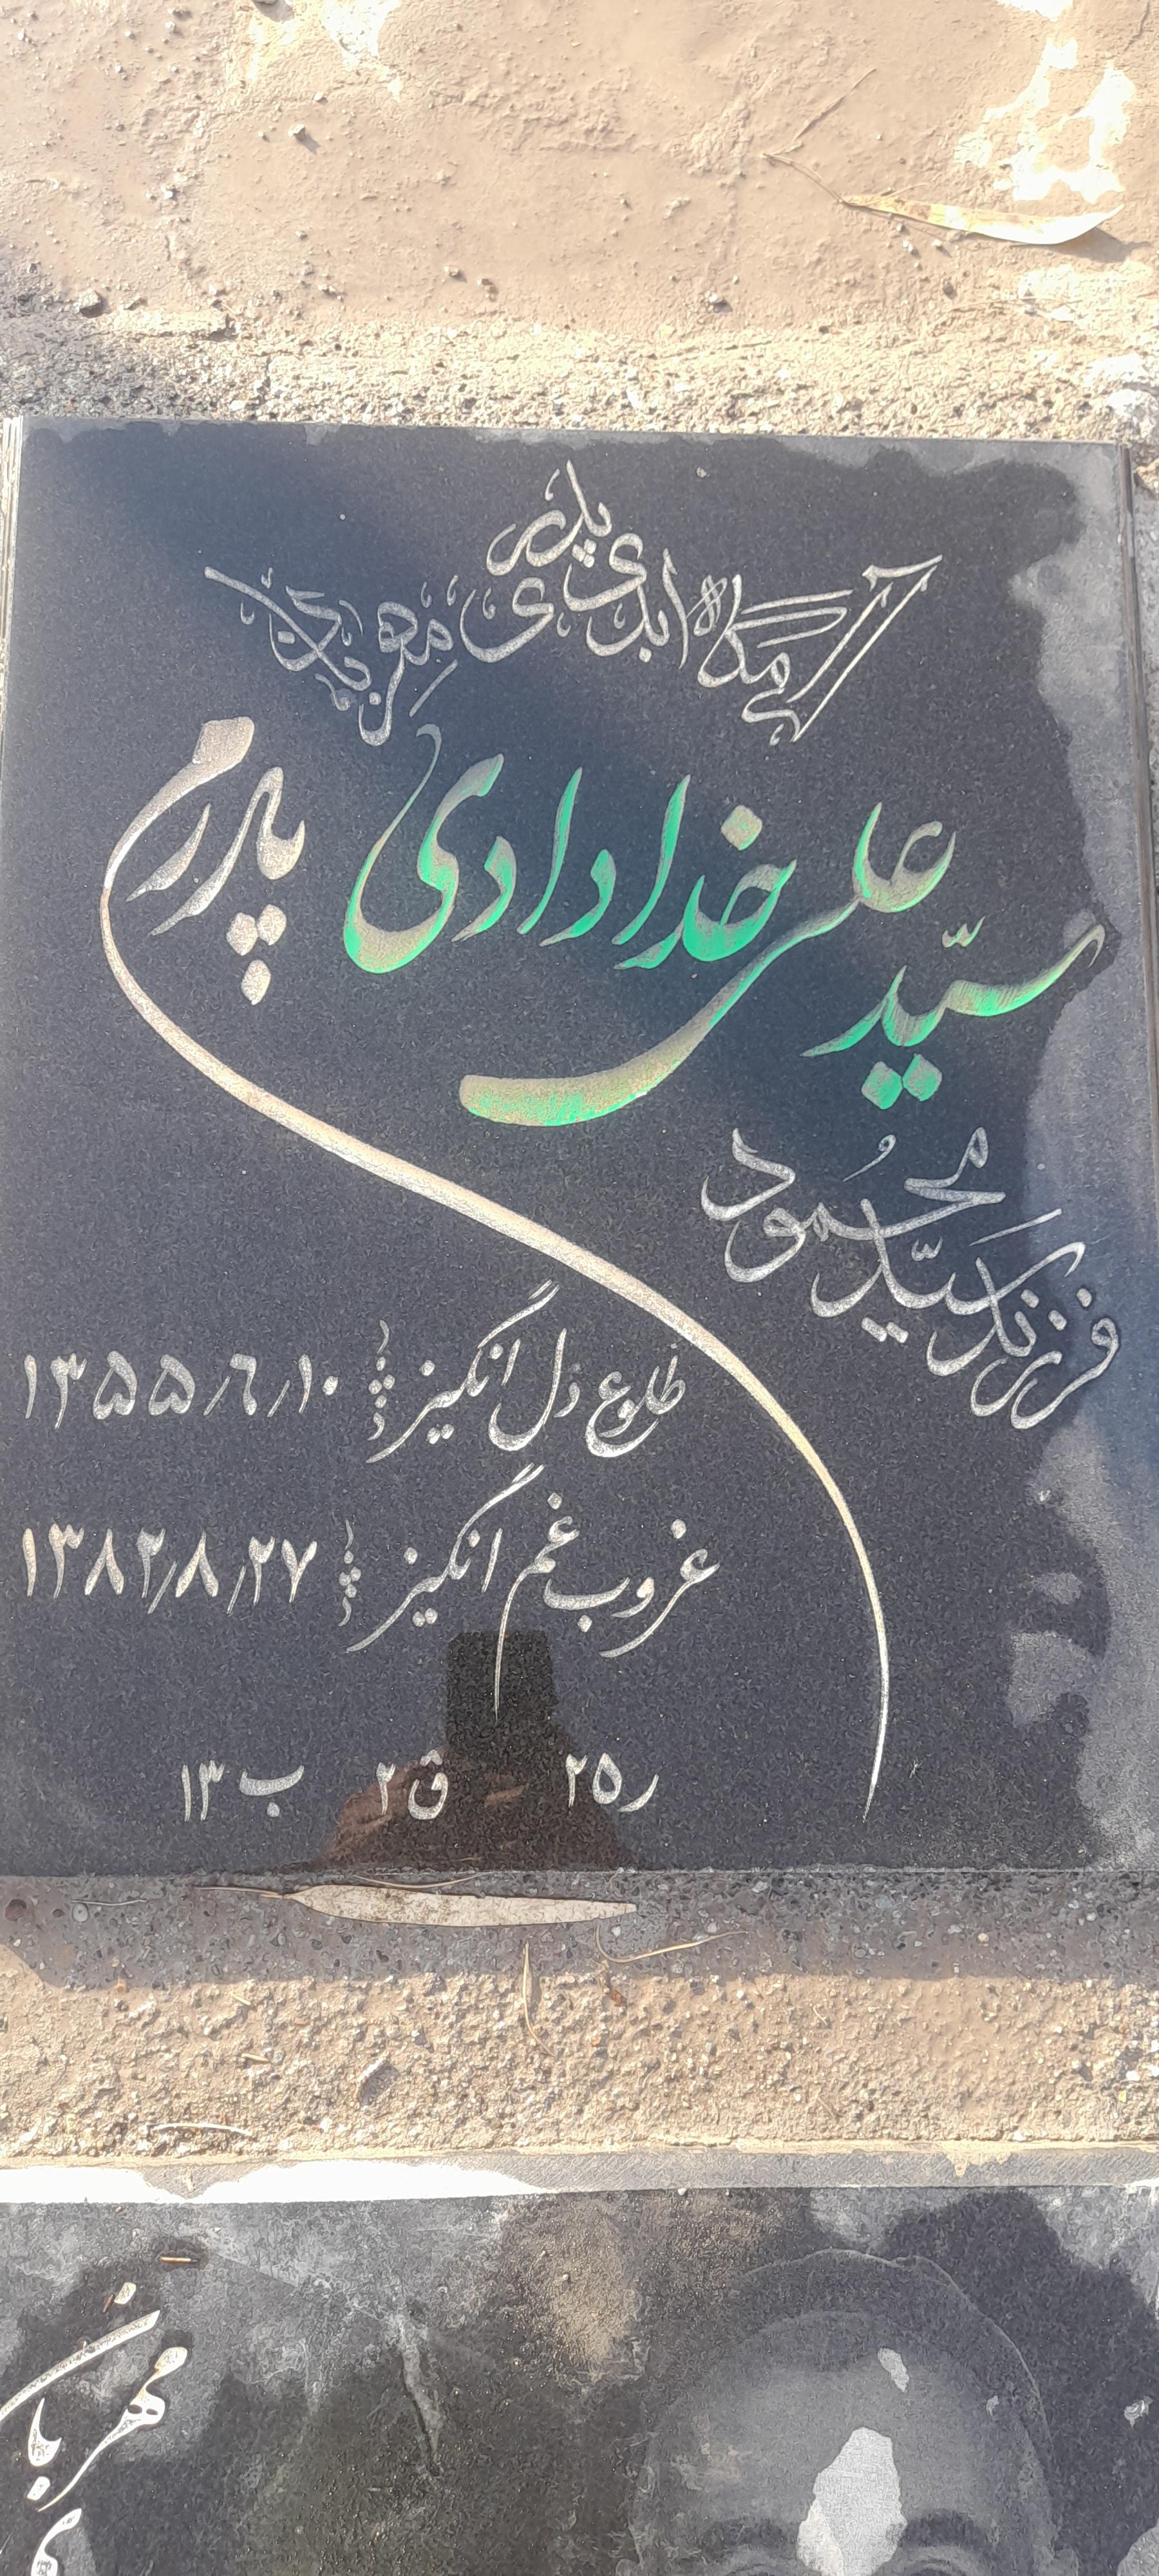 آرامگاه ابدی پدری مهربان
سیّد علی خدادادی
پدرم
فرزند سیّد محمُود
طلوع دل انگیز ۱۳۵۵/۶/۱۰
غروب غم انگیز ۱۳۸۲/۸/۲۷
ر ۲۵ ق ۲ ب ۱۳
مهربان